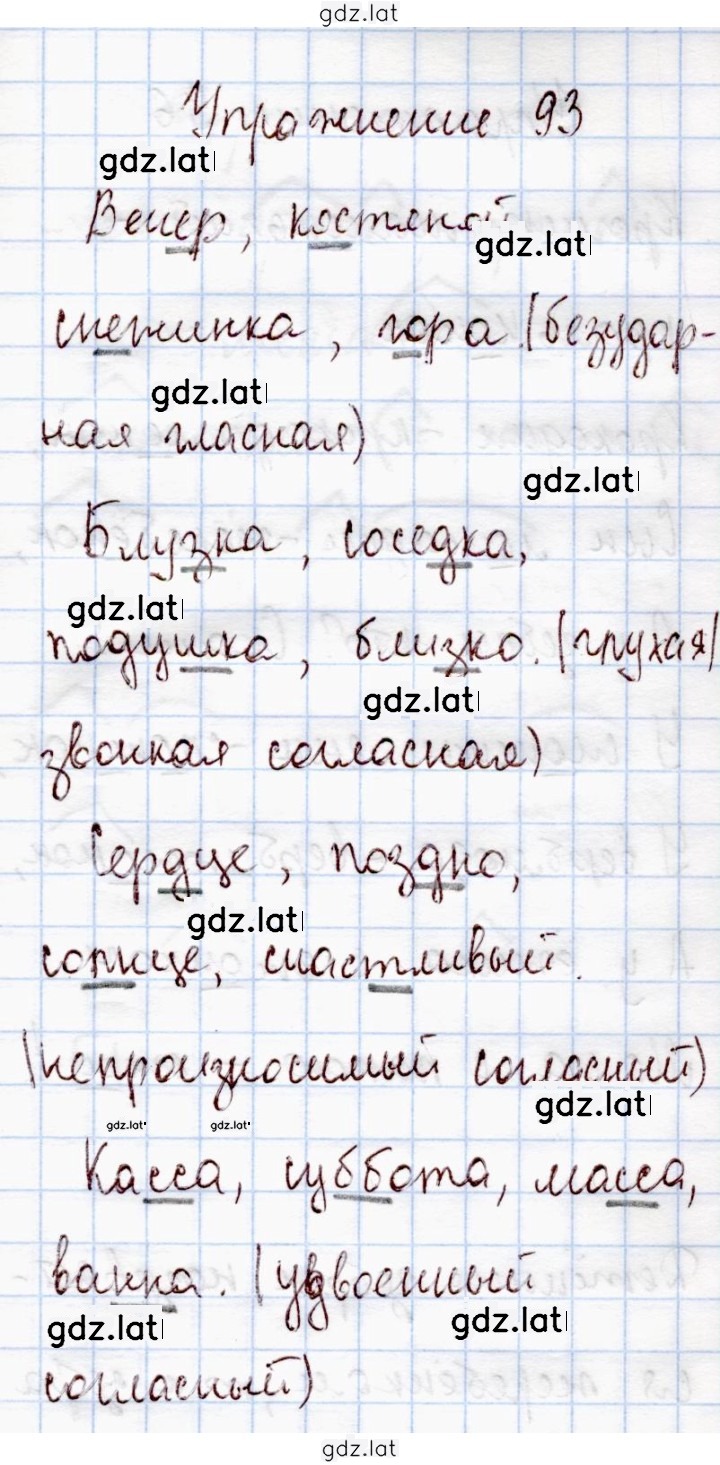 gdz.lat
Упражнение 93
gdz.lat
Вечер, костяной
gdz.lat
снежинка, гора (безудар-
gdz.lat
ная гласная)
gdz.lat
Блузка, соседка,
gdz.lat
подушка, близко. (глухая/
gdz.lat
звонкая согласная)
Сердце, поздно,
gdz.lat
солнце, счастливый.
(непроизносимый согласный)
gdz.lat
gdz.lat gdz.lat
Касса, суббота, масса,
ванна. (удвоенный
gdz.lat gdz.lat
согласный)
gdz.lat